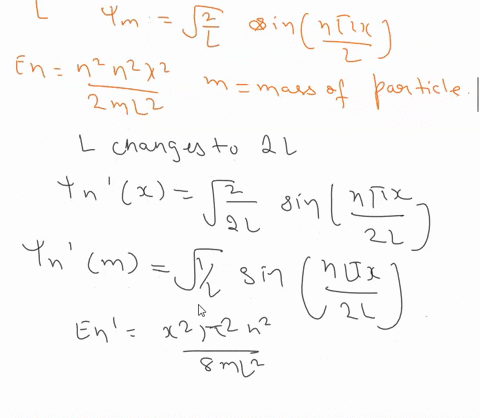 L ψm = √2/L sin(nπx/2)
En = n²n²x²/2mL² m = mass of particle.
L changes to 2L
ψn'(x) = √2/2L sin(nπx/2L)
ψn'(m) = √1/L sin(nπx/2L)
En' = x²π²n²/8mL²